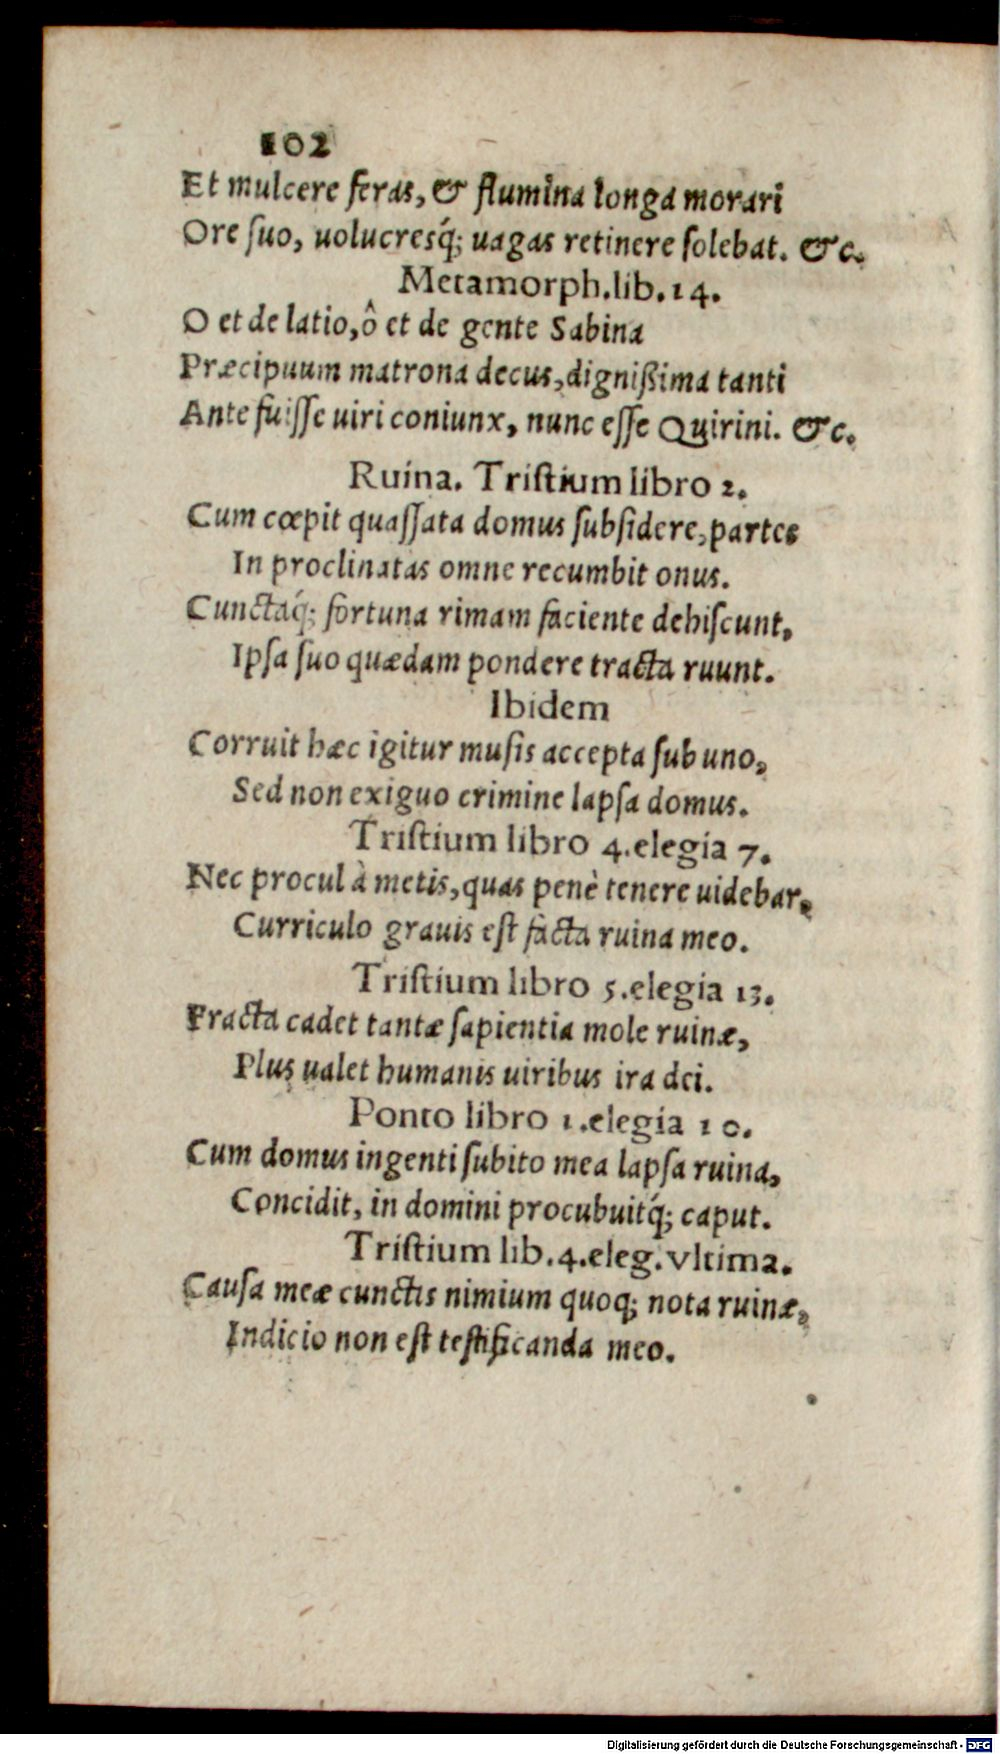 102
Et mulcere feras, & flumina longa morari
Ore ſuo, uolucresq́; uagas retinere ſolebat. &c.
Metamorph.lib.14.
O et de latio, ô et de gente Sabina
Præcipuum matrona decus, digniſsima tanti
Ante fuiſſe uiri coniunx, nunc eſſe Quirini. &c.
Ruina. Triſtium libro 2.
Cum cœpit quaſſata domus ſubſidere, partes
In proclinatas omne recumbit onus.
Cunctaq́; fortuna rimam faciente dehiſcunt,
Ipſa ſuo quædam pondere tracta ruunt.
Ibidem
Corruit hæc igitur muſis accepta ſub uno,
Sed non exiguo crimine lapſa domus.
Triſtium libro 4.elegia 7.
Nec procul à metis, quas penè tenere uidebar,
Curriculo grauis eſt facta ruina meo.
Triſtium libro 5.elegia 13.
Fracta cadet tantæ ſapientia mole ruinæ,
Plus ualet humanis uiribus ira dei.
Ponto libro 1.elegia 10.
Cum domus ingenti ſubito mea lapſa ruina,
Concidit, in domini procubuitq́; caput.
Triſtium lib.4.eleg.vltima.
Cauſa meæ cunctis nimium quoq; nota ruinæ,
Indicio non eſt teſtificanda meo.
Digitalisierung gefördert durch die Deutsche Forschungsgemeinschaft - DFG